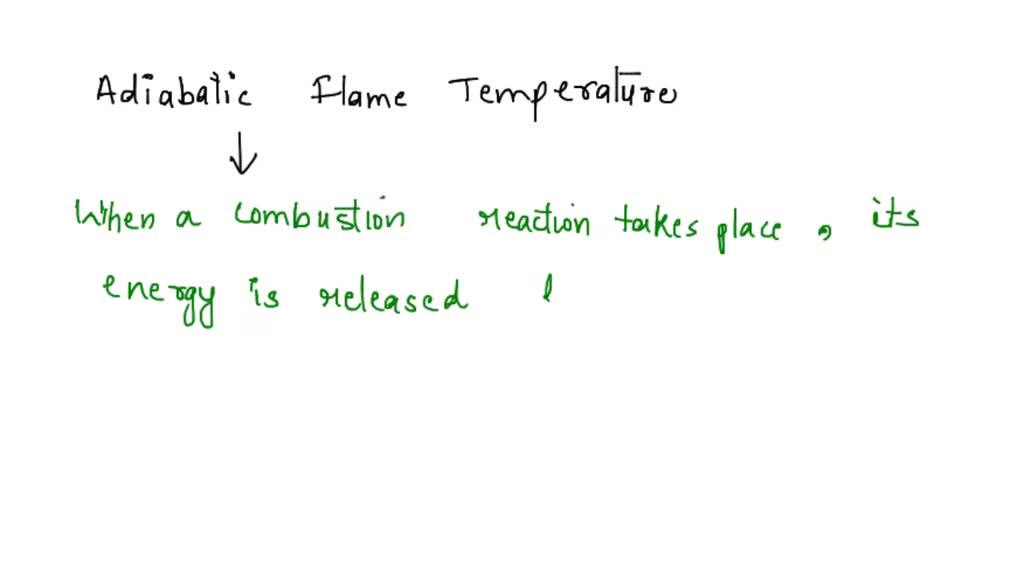 Adiabatic Flame Temperature
When a combustion reaction takes place, its
energy is released